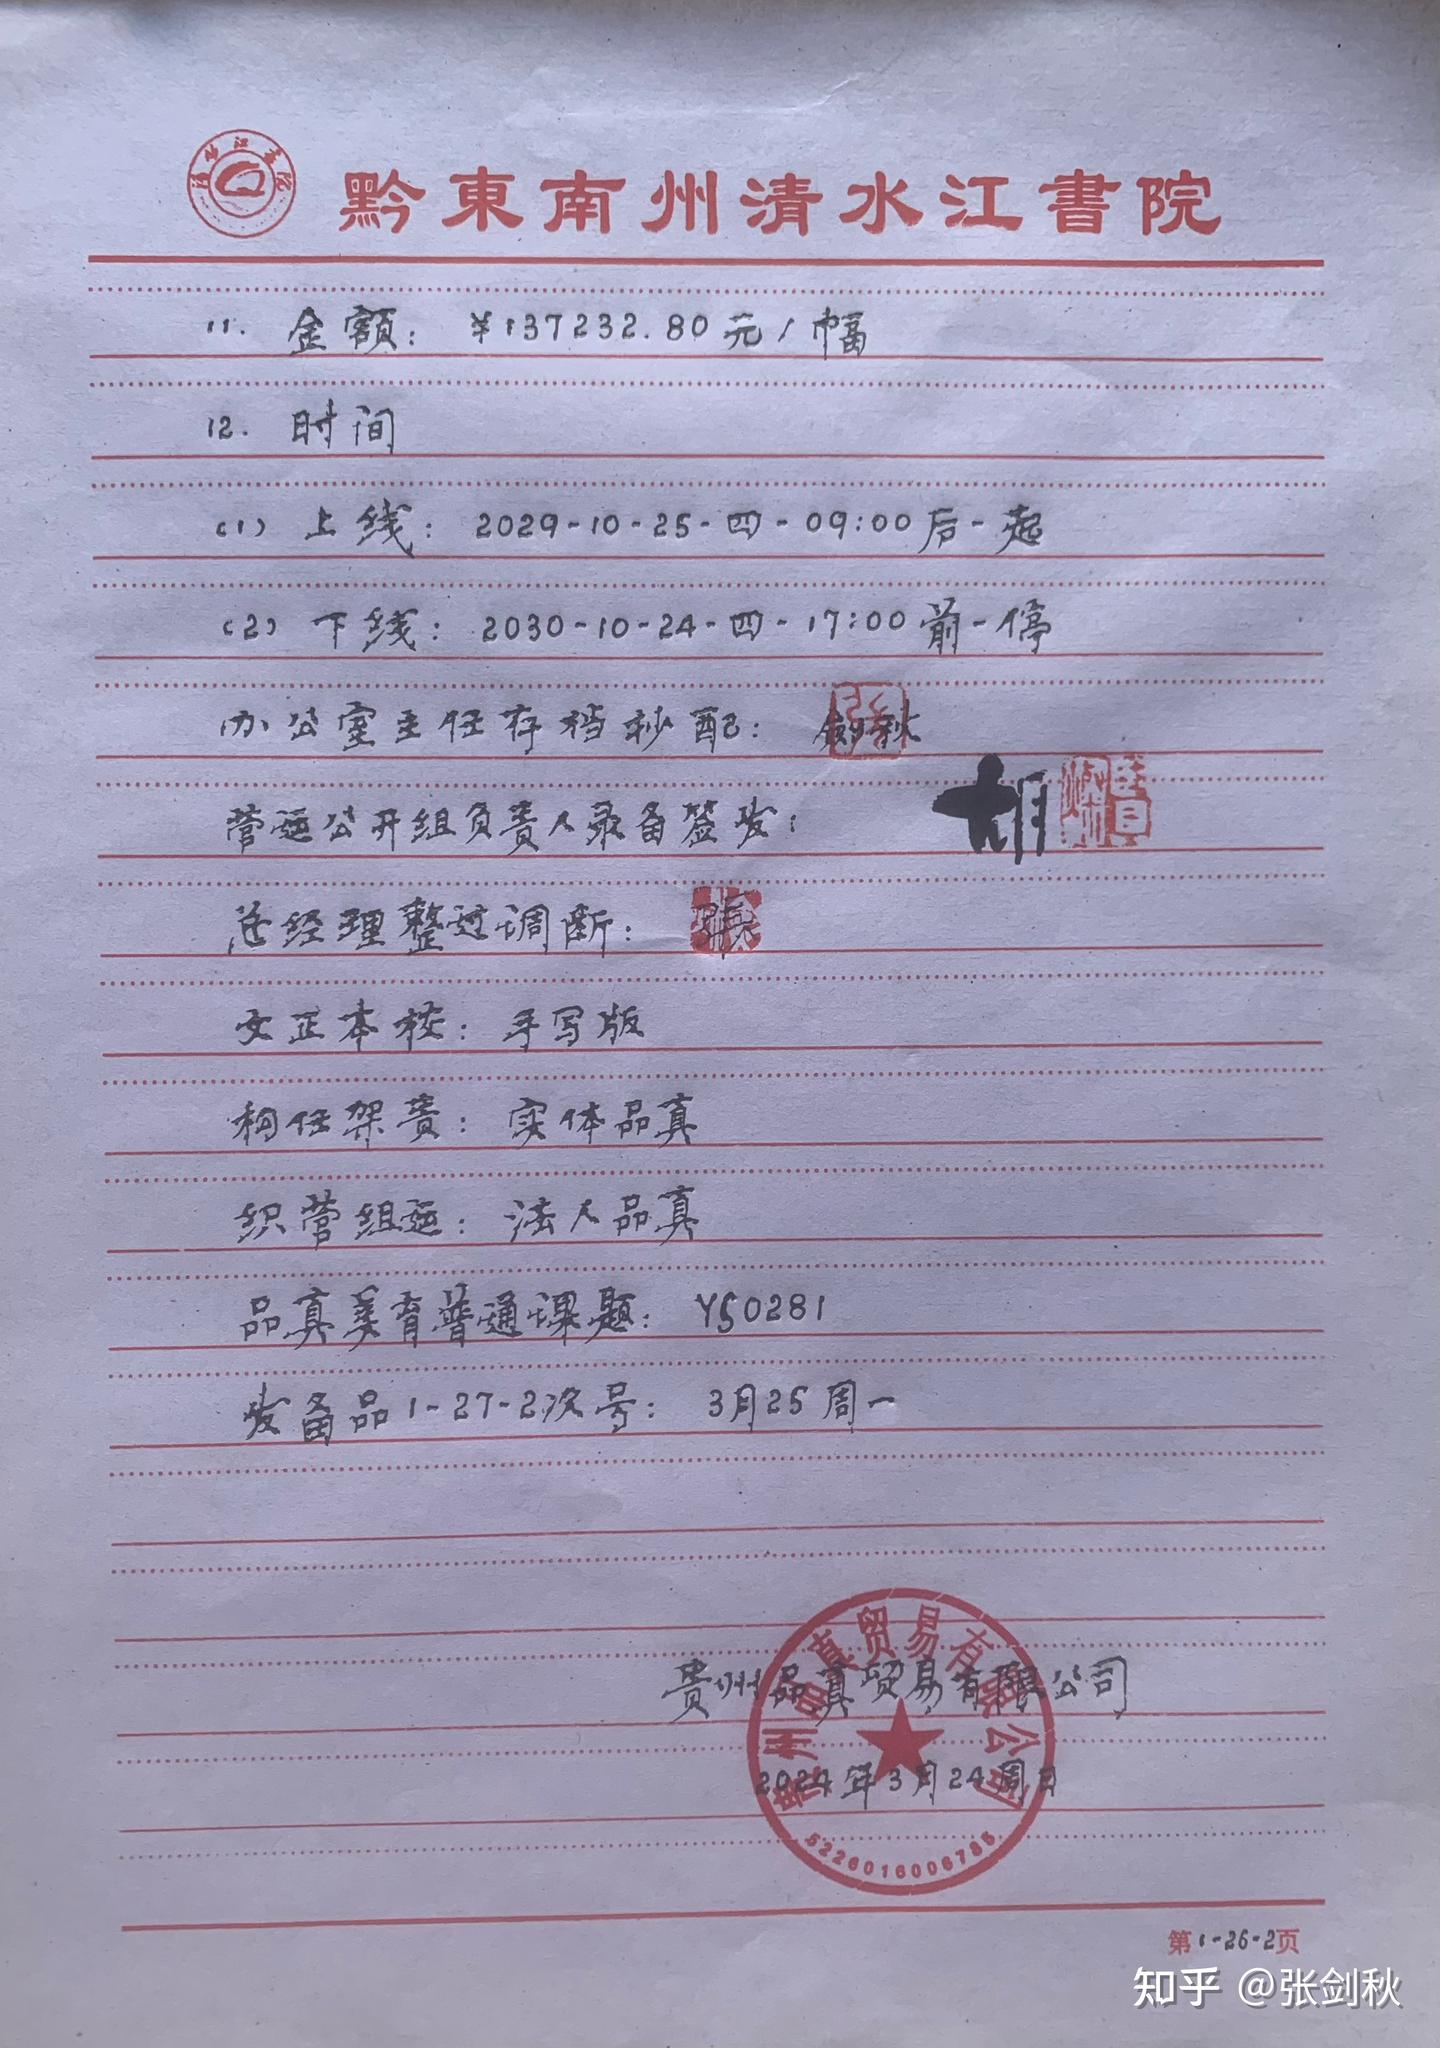 黔東南州清水江書院
11. 金额：¥137232.80元/幅
12. 时间
(1) 上线：2029-10-25-四-09:00后-起
(2) 下线：2030-10-24-四-17:00前-停
办公室主任存档秒配：剑秋
营运公开组负责人录备签发：
总经理整过调断：
文正本校：手写版
构任架责：实体品真
织营组运：法人品真
品真美育普通课题：YS0281
发备品1-27-2次号：3月25周一
贵州品真贸易有限公司
2024年3月24周日
贵州品真贸易有限公司
5226016006785
第1-26-2页
知乎 @张剑秋